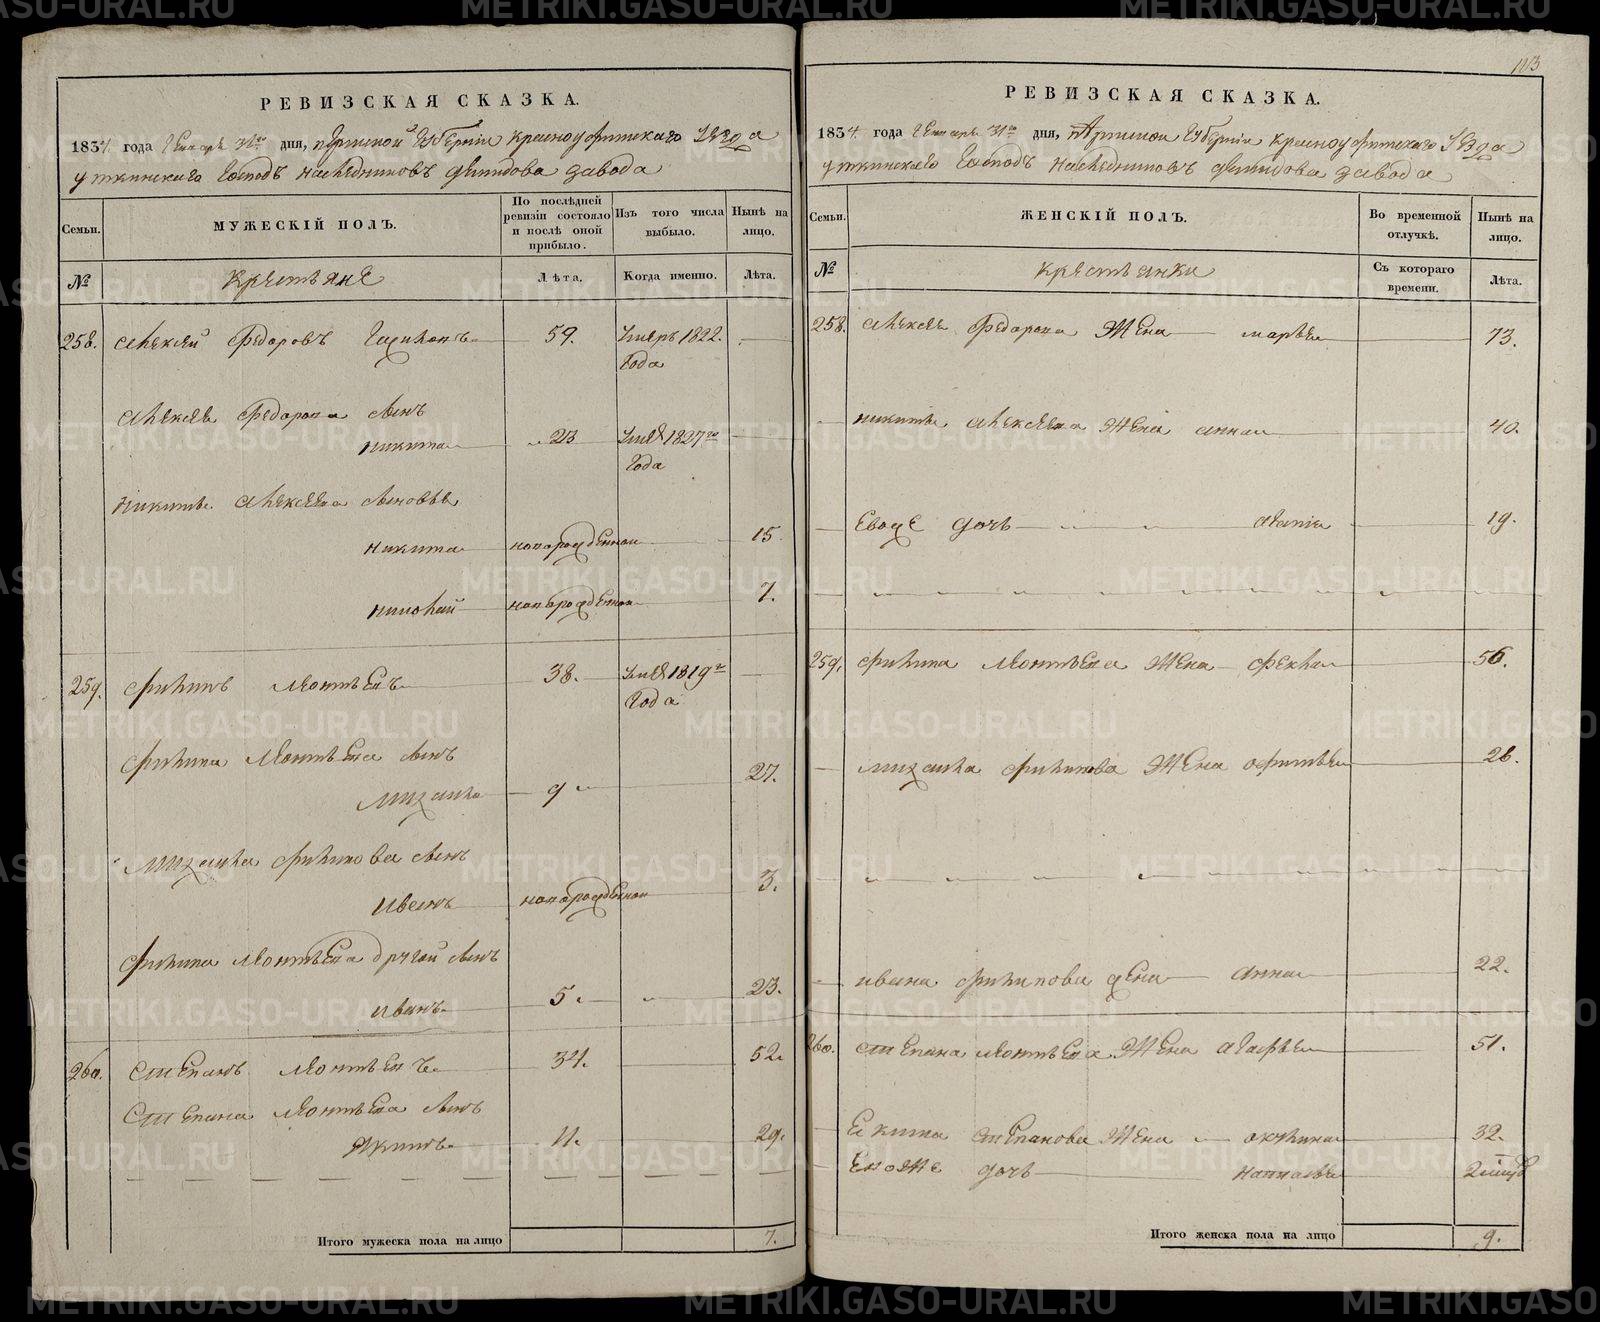 РЕВИЗСКАЯ СКАЗКА.
1834. года Генваря 31го дня, Пермской Губернии Красноуфимского Уезда
Уткинскаго Господъ Наследниковъ Демидова завода
Семьи.
МУЖЕСКІЙ ПОЛЪ.
По послѣдней ревизіи состояло и послѣ оной прибыло.
Изъ того числа выбыло.
Нынѣ на лицо.
№
Крестьяне
Лѣта.
Когда именно.
Лѣта.
258. Алексей Федоровъ 59. Умеръ 1822.
Года
Алексея Федорова сынъ
Никита 23 Умеръ 1827го
Года
Никиты Алексеева сыновья
Никита новорожденной 15.
Николай новорожденной 7.
259. Филипъ Леонтьевъ 38. Умеръ 1819го
Года
Филипа Леонтьева сынъ
Михаила 9 27.
Михаила Филипова сынъ
Иванъ новорожденной 3.
Филипа Леонтьева другой сынъ
Иванъ 5. 23.
260. Степанъ Леонтьевъ 34. 52.
Степана Леонтьева сынъ
Якимъ 11. 29.
Итого мужеска пола на лицо 7.
103
РЕВИЗСКАЯ СКАЗКА.
1834. года Генваря 31го дня, Пермской Губернии Красноуфимского Уезда
Уткинскаго Господъ Наследниковъ Демидова завода
Семьи.
ЖЕНСКІЙ ПОЛЪ.
Во временной отлучкѣ.
Нынѣ на лицо.
№
Крестьянки
Съ котораго времени.
Лѣта.
258. Алексея Федорова жена Марья 73.
Никиты Алексеева жена Анна 40.
Евоже дочь 19.
259. Филипа Леонтьева жена Фекла 56.
Михаила Филипова жена Офимья 28.
Ивана Филипова жена Анна 22.
260. Степана Леонтьева жена Агафья 51.
Екима Степанова жена Окулина 32.
Евоже дочь Наталья
Итого женска пола на лицо 9.
METRIKI.GASO-URAL.RU